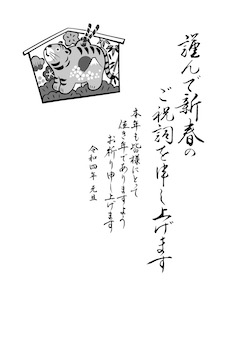 謹んで新春の
ご祝詞を申し上げます
本年も皆様にとって
佳き年でありますよう
お祈り申し上げます
令和四年 元旦